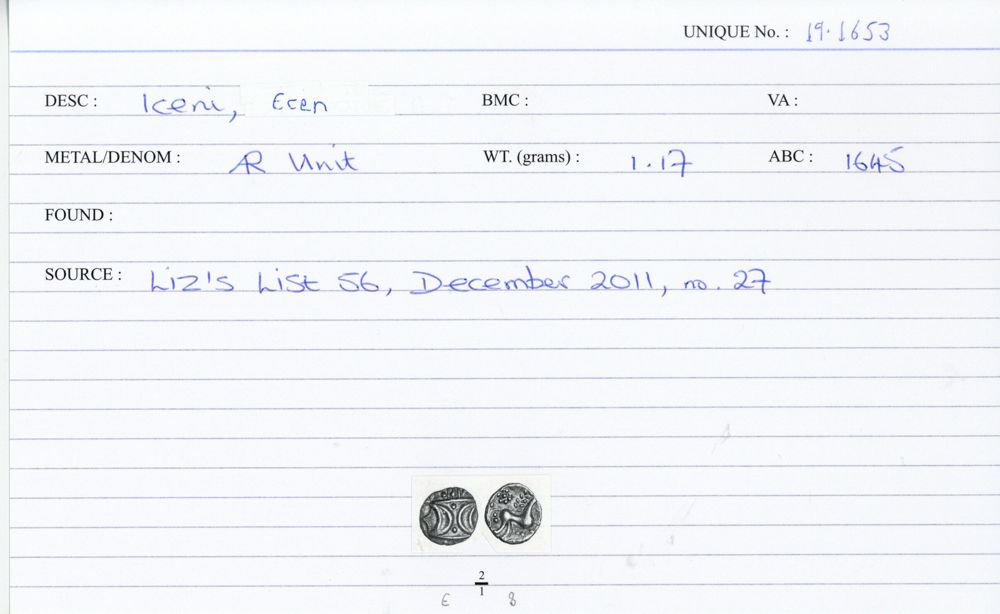 UNIQUE No. : 19.1653
DESC : Iceni, Ecen BMC : VA :
METAL/DENOM : AR Unit WT. (grams) : 1.17 ABC : 1645
FOUND :
SOURCE : Liz's List 56, December 2011, no. 27
2
1
E 8